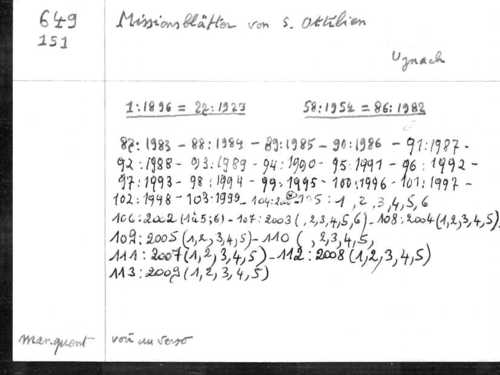 649 Missionsblätter von S. Ottilien
151
Uznach
1:1896 = 27:1923 58:1954 = 86:1982
87:1983 - 88:1984 - 89:1985 - 90:1986 - 91:1987 -
92:1988 - 93:1989 - 94:1990 - 95:1991 - 96:1992 -
97:1993 - 98:1994 - 99:1995 - 100:1996 - 101:1997 -
102:1998 - 103:1999 - 105: 1, 2, 3, 4, 5, 6
106:2002 ( 5, 6) - 107:2003 ( , 2, 3, 4, 5, 6) - 108:2004 (1, 2, 3, 4, 5).
109:2005 (1, 2, 3, 4, 5) - 110 ( , 2, 3, 4, 5,
111:2007 (1, 2, 3, 4, 5) - 112:2008 (1, 2, 3, 4, 5)
113:2009 (1, 2, 3, 4, 5)
manquent voir au verso